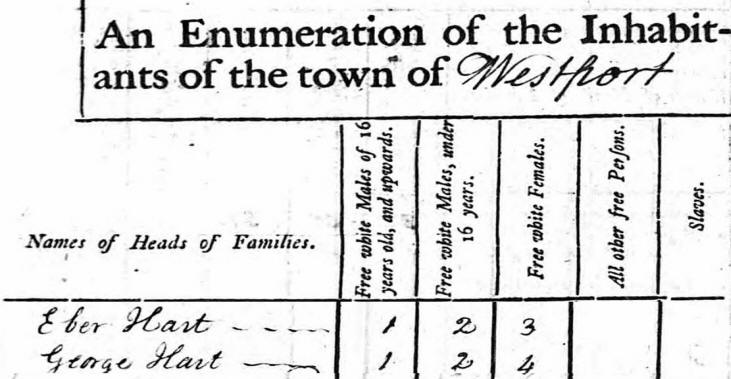 An Enumeration of the Inhabit-
ants of the town of Westport
Names of Heads of Families.
Free white Males of 16
years old, and upwards.
Free white Males, under
16 years.
Free white Females.
All other free Perſons.
Slaves.
Eber Hart 1 2 3
George Hart 1 2 4